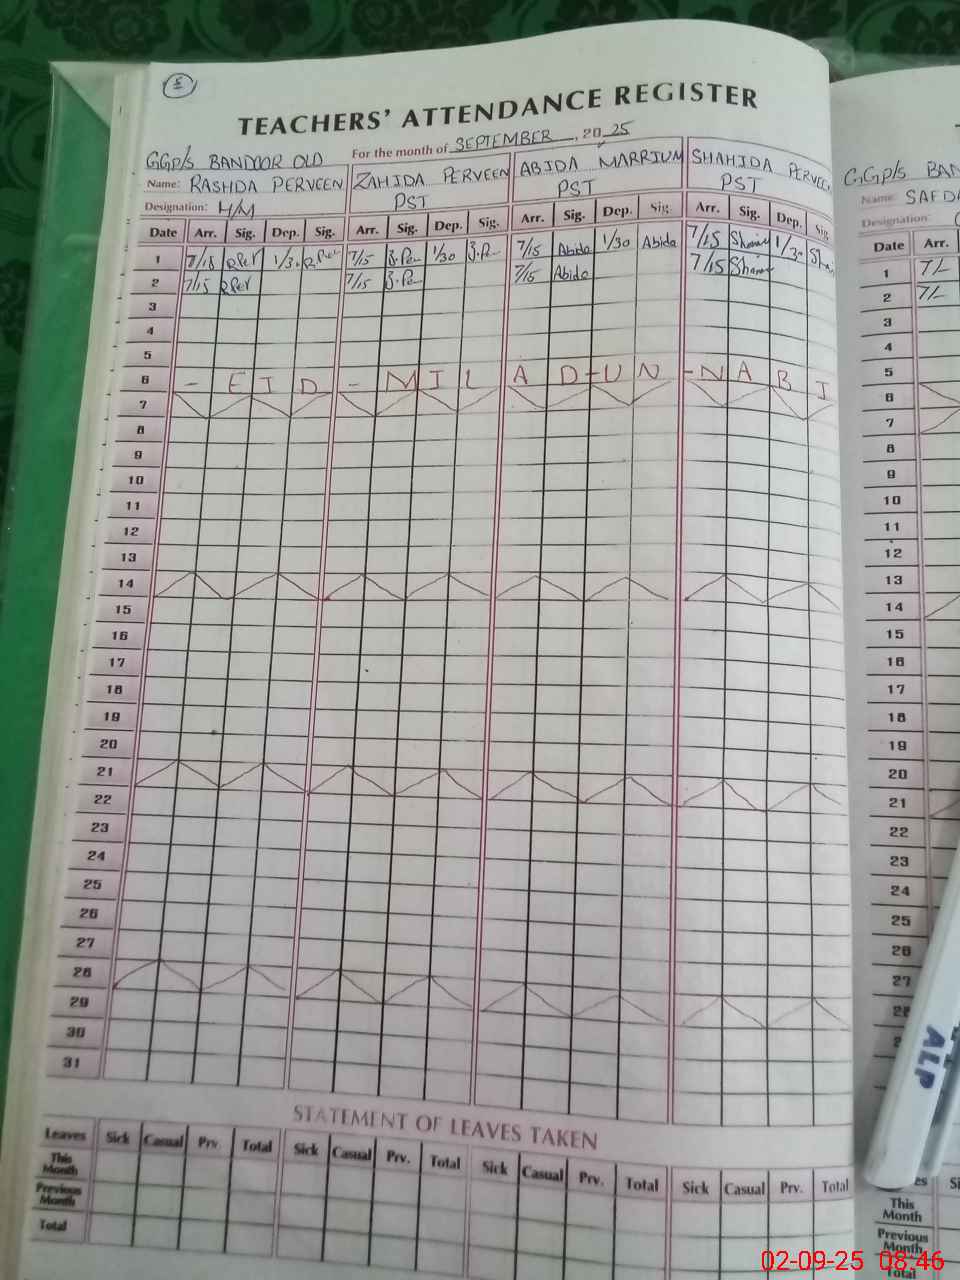 5
TEACHERS' ATTENDANCE REGISTER
GGP/S BANDOOR OLD For the month of SEPTEMBER, 2025
Name: RASHDA PERVEEN ZAHIDA PERVEEN ABIDA MARRIUM SHAHIDA PERVEEN
Designation: H/M PST PST PST
Date Arr. Sig. Dep. Sig. Arr. Sig. Dep. Sig. Arr. Sig. Dep. Sig. Arr. Sig. Dep. Sig.
1 7/15 1/30 7/15 1/30 7/15 Abida 1/30 Abida 7/15 1/30
2 7/15 7/15 7/15 Abida 7/15
3
4
5
6 - EID - MILAD-UN-NABI
7
8
9
10
11
12
13
14
15
16
17
18
19
20
21
22
23
24
25
26
27
28
29
30
31
STATEMENT OF LEAVES TAKEN
Leaves Sick Casual Prv. Total Sick Casual Prv. Total Sick Casual Prv. Total Sick Casual Prv. Total
This Month
Previous Month
Total
GGP/S BAN
Name: SAFD
Designation:
Date Arr.
1 7/
2 7/
3
4
5
6
7
8
9
10
11
12
13
14
15
16
17
18
19
20
21
22
23
24
25
26
27
28
ALP
This Month
Previous Month
Total
02-09-25 08:46